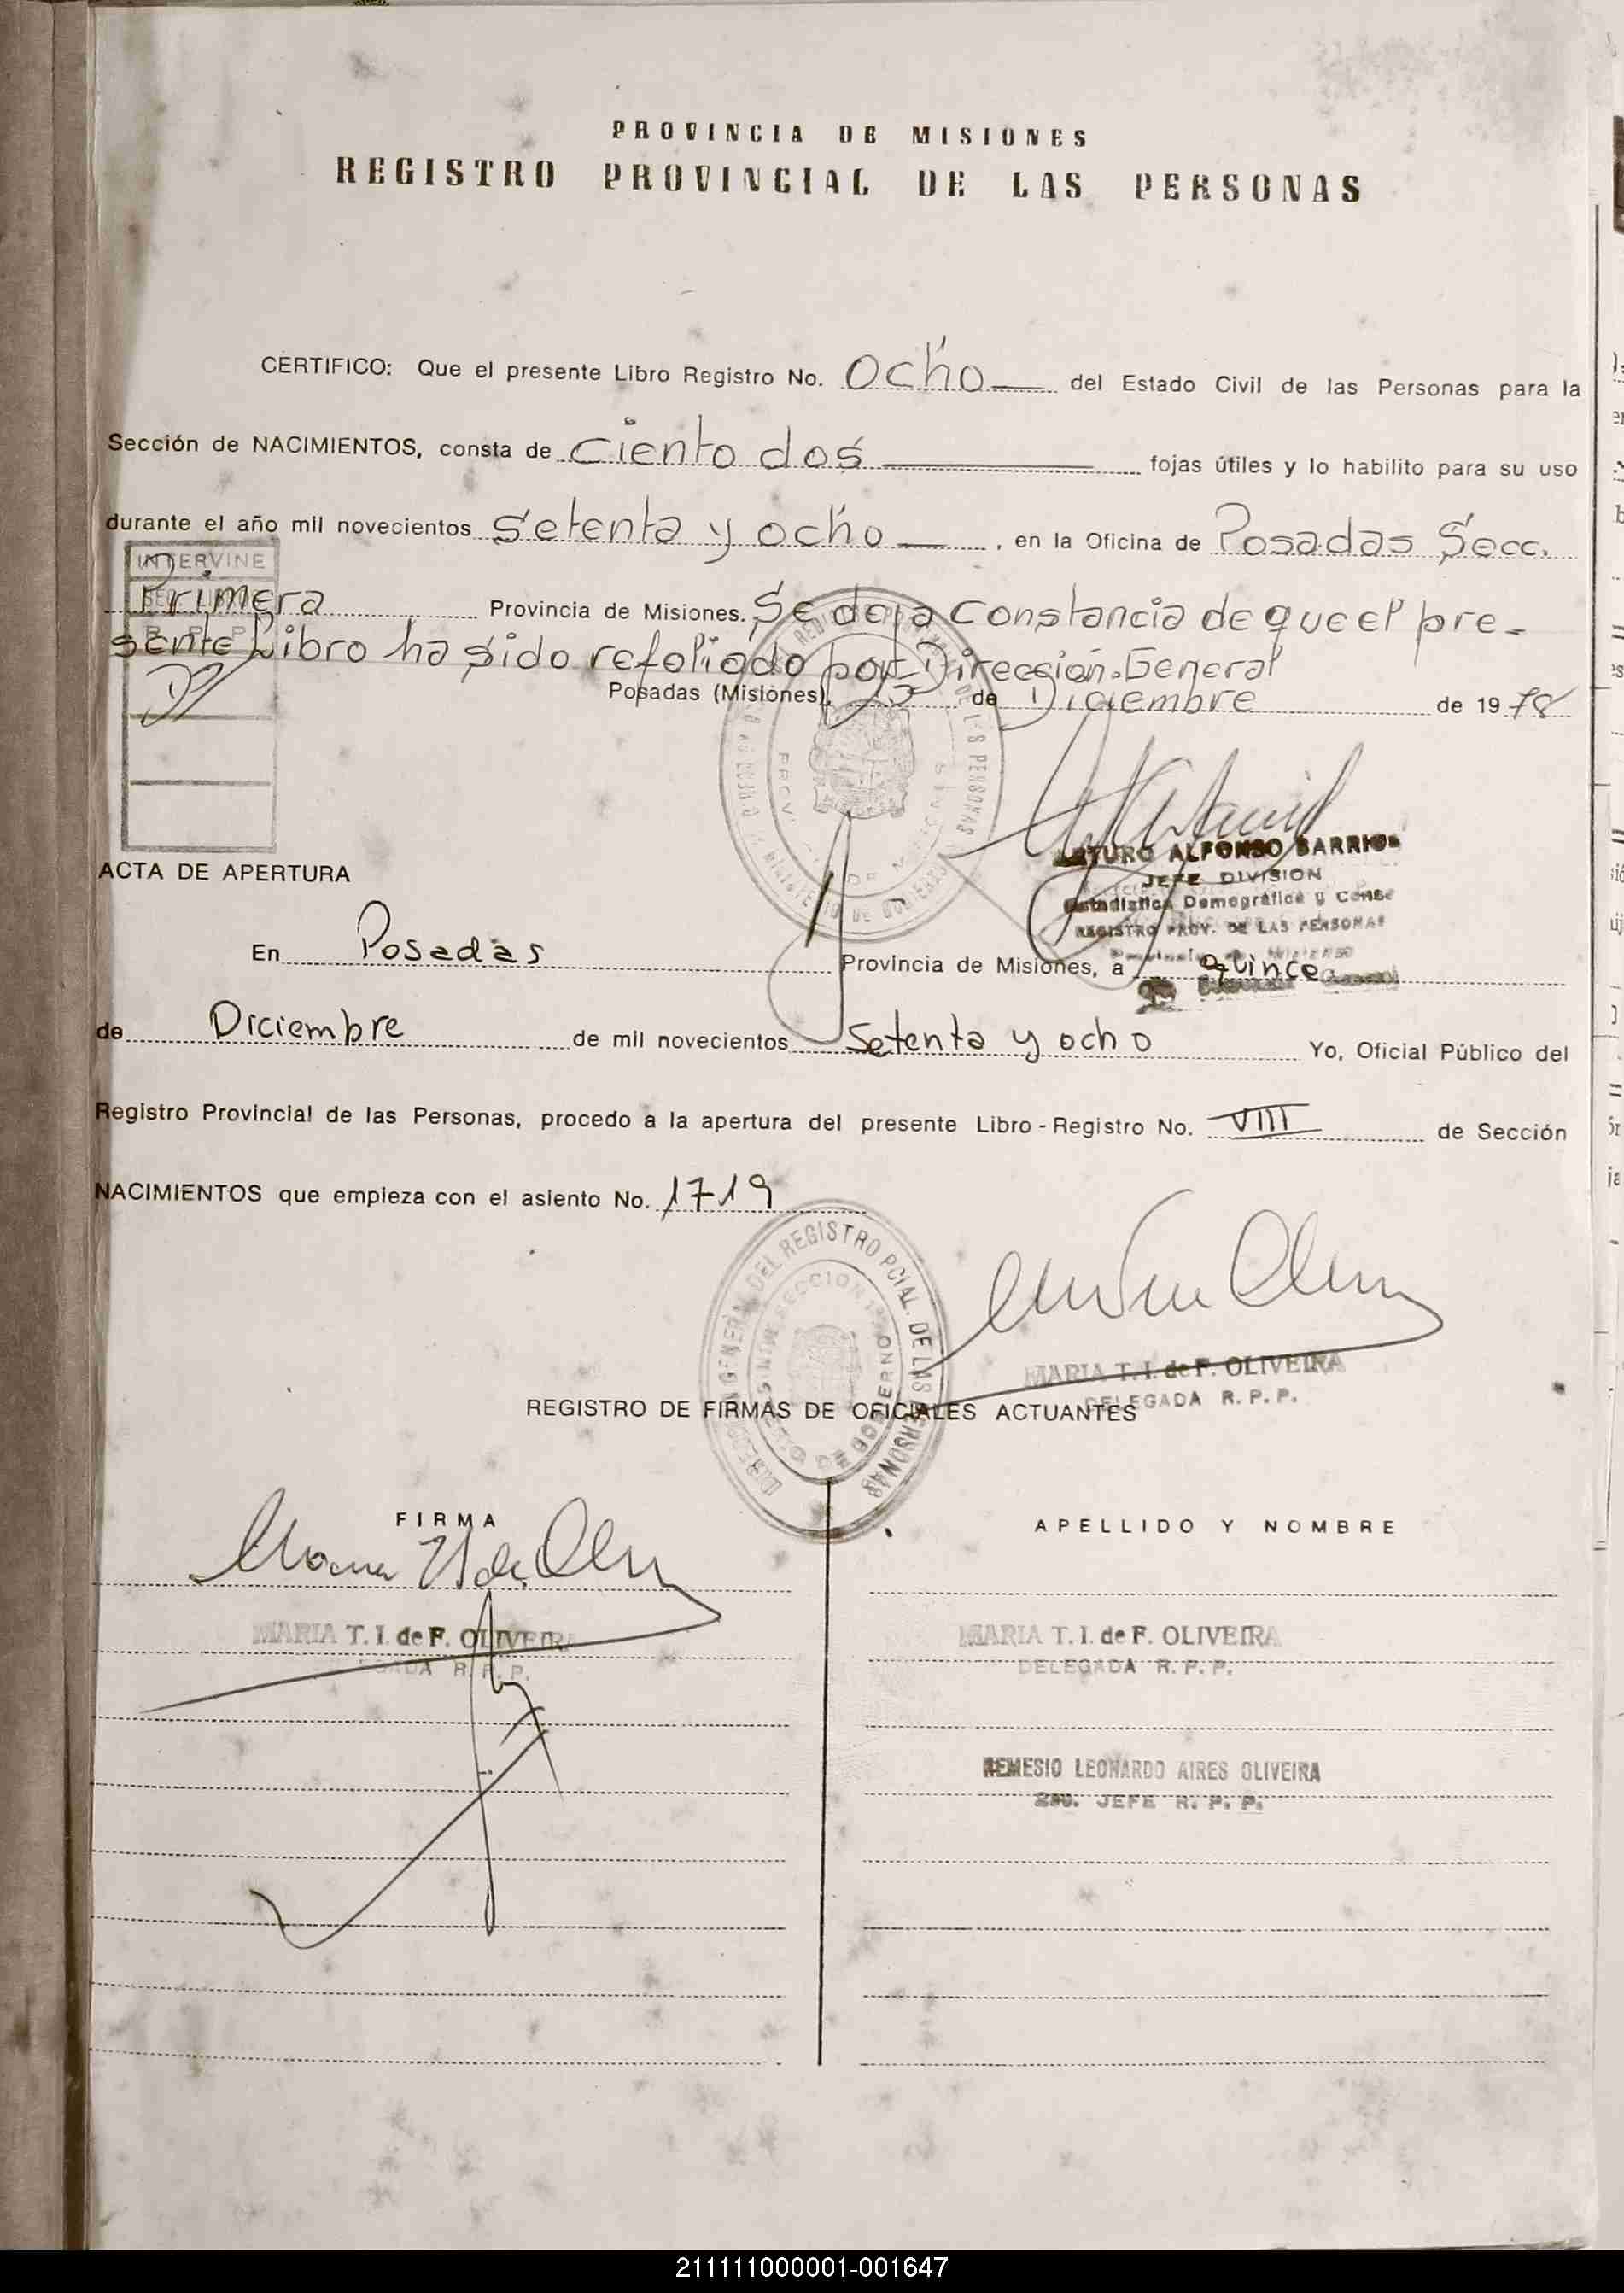 PROVINCIA DE MISIONES
REGISTRO PROVINCIAL DE LAS PERSONAS
CERTIFICO: Que el presente Libro Registro No. Ocho del Estado Civil de las Personas para la
Sección de NACIMIENTOS, consta de Ciento dos fojas útiles y lo habilito para su uso
durante el año mil novecientos Setenta y ocho, en la Oficina de Posadas Secc.
INTERVINE
Primera Provincia de Misiones. Se deja Constancia de que el pre-
sente Libro ha sido refoliado por Dirección General
R. P. P.
Posadas (Misiones), de Diciembre de 1978
ARTURO ALFONSO BARRIOS
JEFE DIVISION
Estadística Demográfica y Conse
REGISTRO PROV. DE LAS PERSONAS
ACTA DE APERTURA
En Posadas Provincia de Misiones, a quince
de Diciembre de mil novecientos Setenta y ocho Yo, Oficial Público del
Registro Provincial de las Personas, procedo a la apertura del presente Libro-Registro No. VIII de Sección
NACIMIENTOS que empieza con el asiento No. 1719
DIRECCION GENERAL DEL REGISTRO PCIAL. DE LAS PERSONAS
MINISTERIO DE GOBIERNO
MARIA T. I. de F. OLIVEIRA
DELEGADA R. P. P.
REGISTRO DE FIRMAS DE OFICIALES ACTUANTES
FIRMA
APELLIDO Y NOMBRE
MARIA T. I. de F. OLIVEIRA
DELEGADA R. P. P.
MARIA T. I. de F. OLIVEIRA
DELEGADA R. P. P.
NEMESIO LEONARDO AIRES OLIVEIRA
2do. JEFE R. P. P.
211111000001-001647